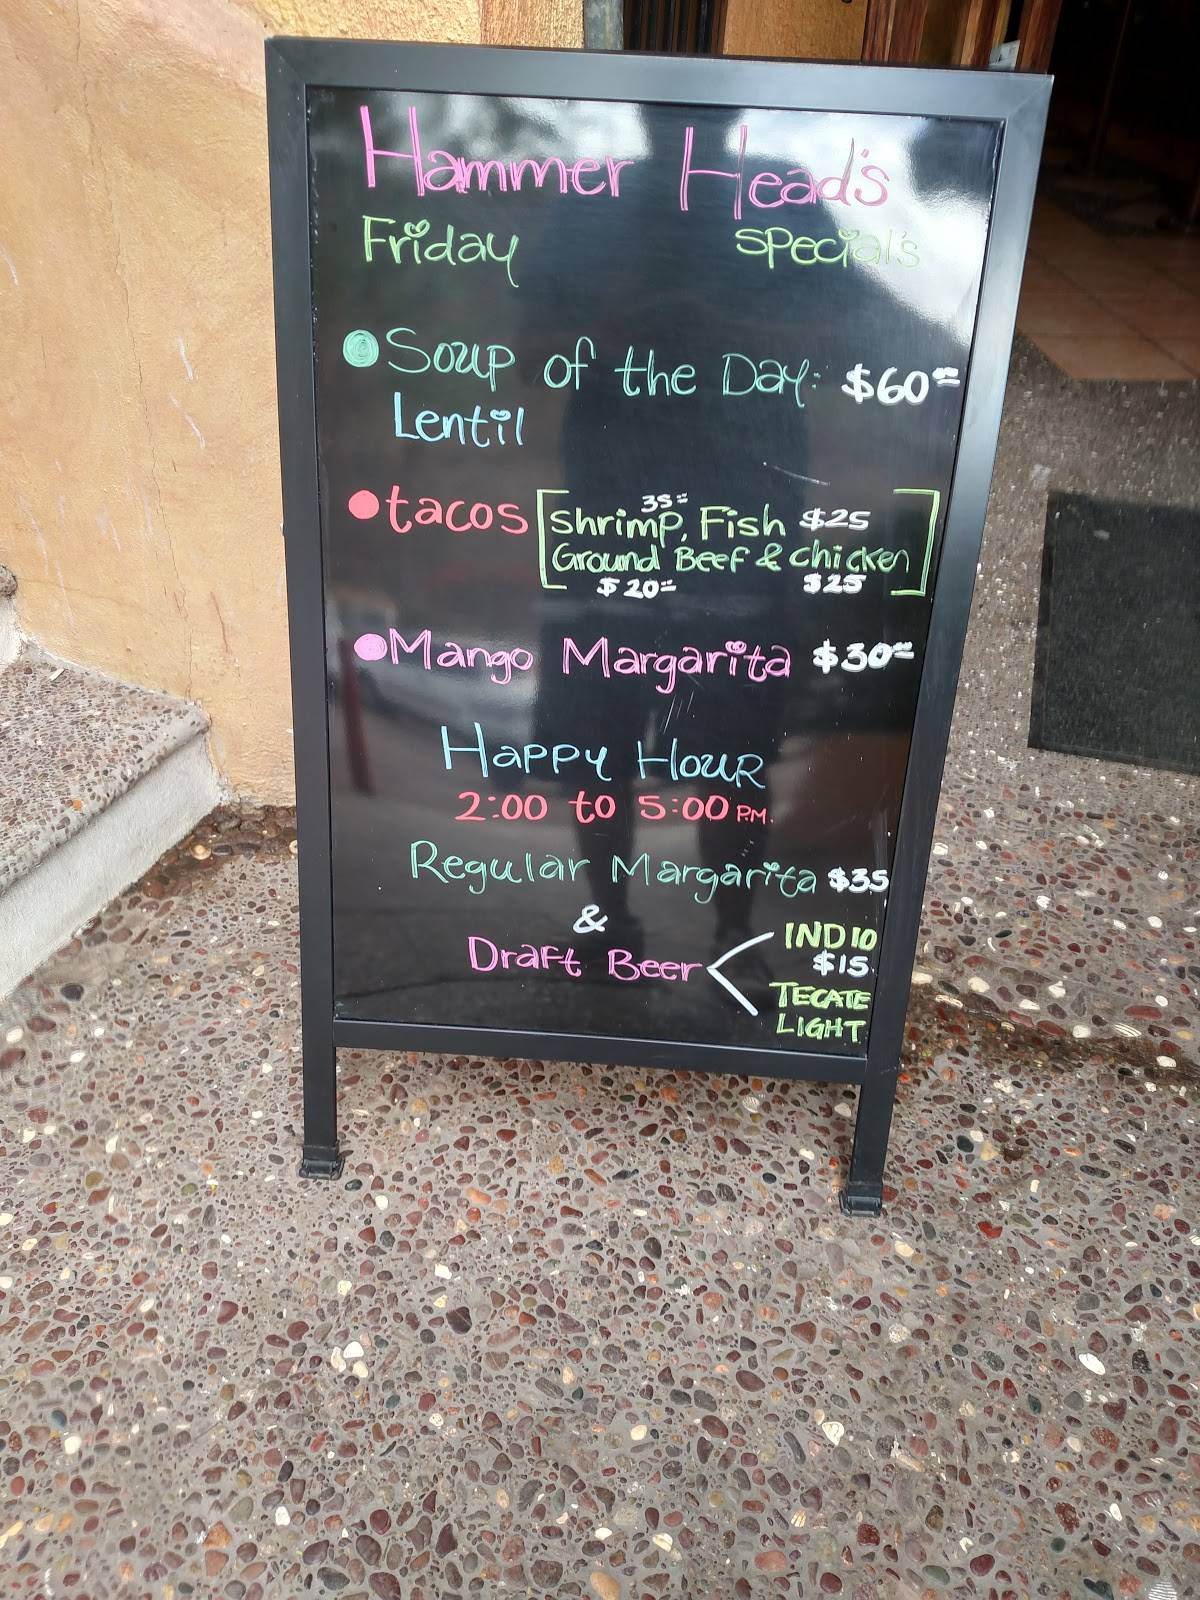 Hammer Head's
Friday special's
Soup of the Day: $60⁰⁰
Lentil
tacos
35⁰⁰
Shrimp, Fish $25
Ground Beef & chicken
$20⁰⁰ $25
Mango Margarita $30⁰⁰
Happy Hour
2:00 to 5:00 P.M.
Regular Margarita $35
&
Draft Beer
INDIO
$15
TECATE
LIGHT